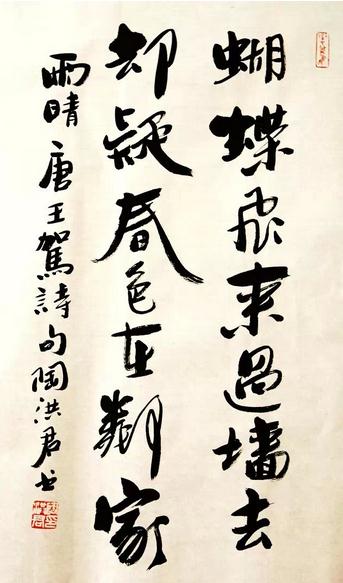 蝴蝶飛來過墙去
却疑春色在鄰家
雨晴 唐王駕詩句陶洪君书